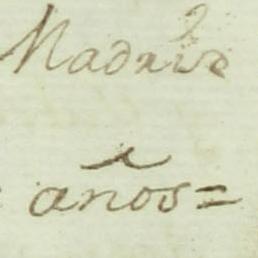 Madrid
años=